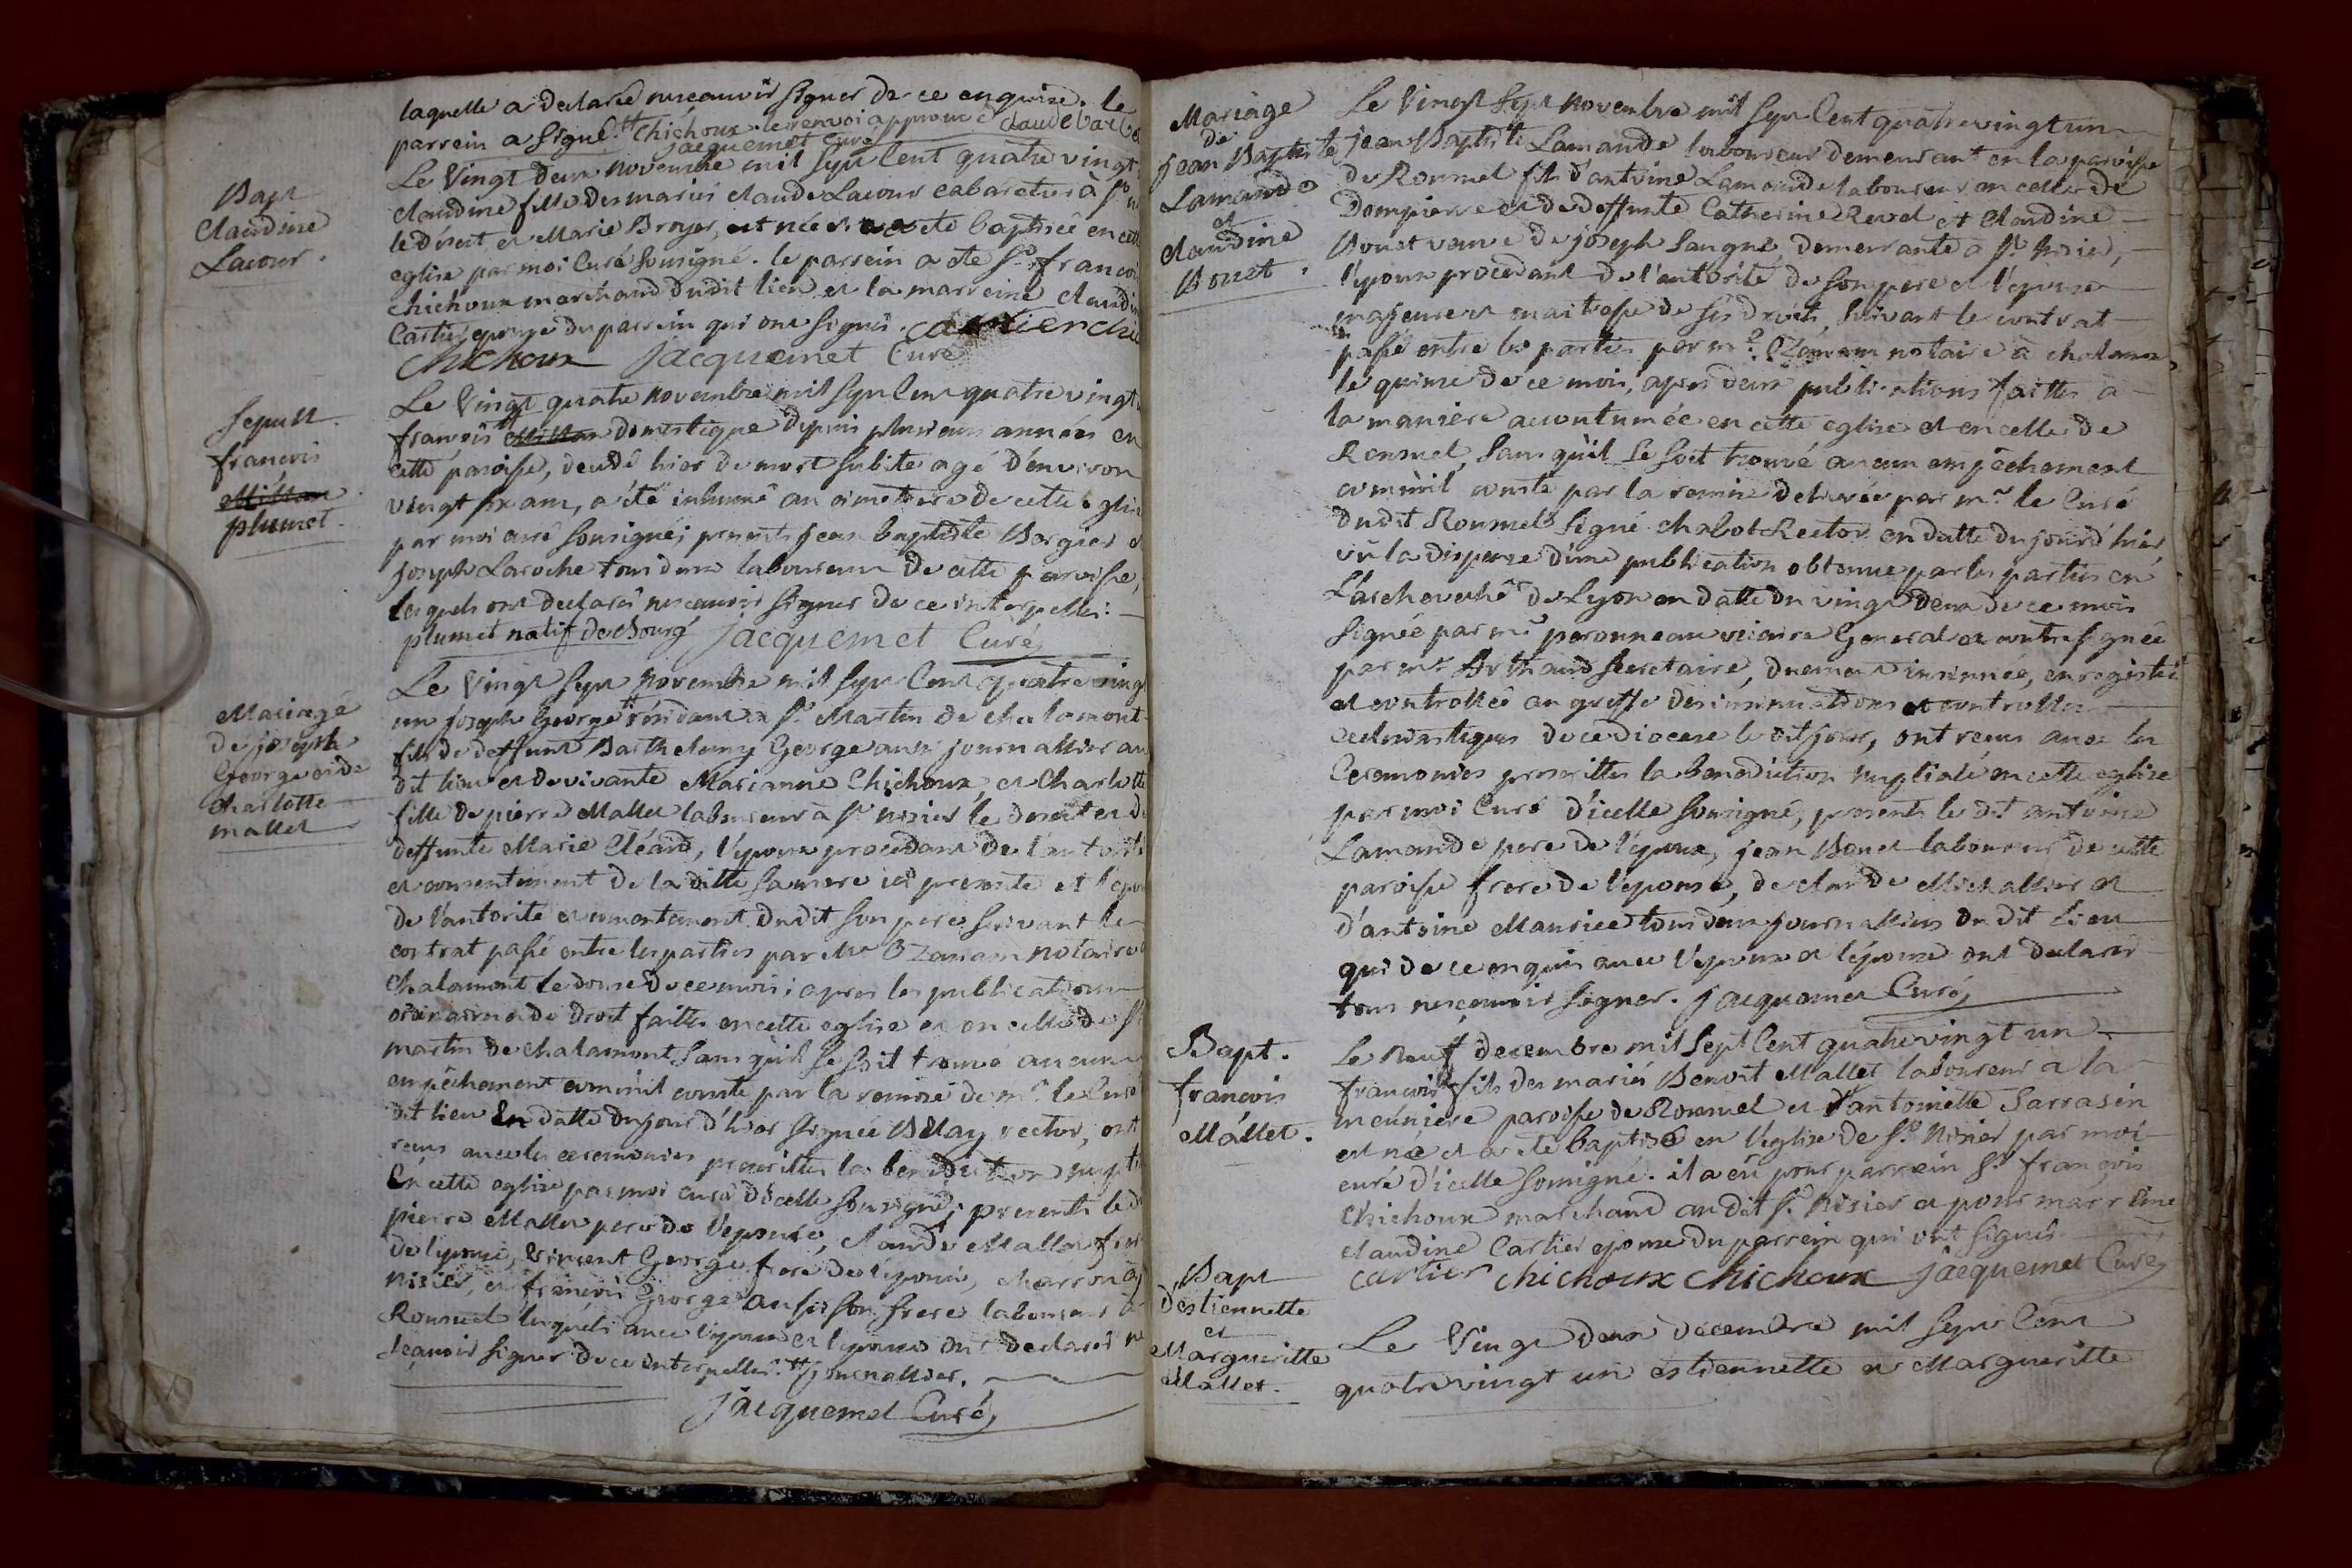 laquelle a declaré ne scauoir signer de ce enquise. le
parrein a signé. Chichoux. le renvoi approuvé claude
jacquemet Curé
Bapt
Claudine
Lacour.
Le Vingt deux novembre mil sept Cent quatre vingt
claudine fille des mariés claude Lacour cabaretier à St
le désert et Marie Broyer, est née et a été baptisée en cette
eglise par moi Curé soussigné. le parrein a été Sr françois
chichoux marchand dudit lieu et la marreine claudine
Cartier epouse du parrein qui ont signés. cartier
chichoux jacquemet Curé
Sepult.
francois
Millan
plumet.
Le Vingt quatre novembre mil sept Cent quatre vingt
françois Millan domestique depuis plusieurs années en
cette paroisse, decedé hier de mort subite agé d'environ
vingt six ans, a été inhumé au cimetiere de cette eglise
par moi curé soussigné; presents jean baptiste Borgier et
joseph Laroche tous deux laboureurs de cette paroisse,
lesquels ont declarés ne scauoir signer de ce interpellés.
plumet natif de Bourg jacquemet Curé
Mariage
de joseph
George et de
charlotte
mallet
Le Vingt sept novembre mil sept Cent quatre vingt
un joseph George résidant a St Martin de chalamont
fils de deffunt Barthelemy George aussi journallier au
dit lieu et de vivante Marianne Chichoux, et Charlotte
fille de pierre Mallet laboureur à St nizier le desert et de
deffunte Marie Cléard, l'époux procedant de l'autorité
et consentement de la ditte sa mere ici presente et l'épouse
de l'autorité et consentement dudit son pere suivant le
contrat passé entre les parties par Me Ozanam notaire a
Chalamont le douze de ce mois; apres les publications
ordinaires et de droit faittes en cette eglise et en celle de St
martin de chalamont sans qu'il se soit trouvé aucun
empêchement comm'il conste par la remise de mr. le Curé
dit lieu en datte du jour d'hier signée Billay rector, ont
reçus avec les ceremonies prescrittes la benediction nupt
En cette eglise par moi curé d'icelle soussigné; presents le dt
pierre Mallet pere de l'epouse, claude Mallet frere
de l'epouse, Vincent George frere de l'époux,
nizier, et françois George aussi son frere laboureur à
Ronzuel lesquels avec l'epoux et l'epouse ont declarés ne
scauoir signer de ce interpellés. journallier.
jacquemet Curé
Mariage
de
jean Baptiste
Lamande
et
claudine
Bonet.
Le Vingt Sept novembre mil sept Cent quatre vingt un
jean Baptiste Lamande laboureur demeurant en la paroisse
de Ronzuel fils d'antoine Lamande laboureur en celle de
Dompierre et de deffunte Catherine Revel et Claudine
Bonet veuve de joseph Sangne, demeurante a St Nizier,
l'époux procedant de l'autorité de son pere et l'épouse
majeure et maitresse de ses droits, suivant le contrat
passé entre les parties par me. Ozanam notaire à chalamont
le quinze de ce mois, apres deux publications faittes à
la maniere accoutumée en cette eglise et en celle de
Ronzuel, sans qu'il se soit trouvé aucun empêchement
comm'il conste par la remise delivrée par mr. le Curé
dudit Ronzuel signé chabot Rector en datte du jourd'hier,
vû la dispense d'une publication obtenue par les parties en
l'archeveché de Lyon en datte du vingt deux de ce mois
Signée par mr peronneau vicaire General et contresignée
par mr. Arthaud secretaire, duement insinuée, enregistrée
et controllée au greffe des insinuations et controlles
ecclesiastiques de ce diocese le dit jour, ont reçus avec les
Ceremonies prescrittes la benediction nuptiale en cette eglise
par moi Curé d'icelle soussigné, presents le dit antoine
Lamande pere de l'époux, jean Bonet laboureur de cette
paroisse frere de l'épouse, de claude Michallier et
d'antoine Maurice tous deux journalliers du dit lieu
qui de ce enquis avec l'époux et l'épouse ont declarés
tous ne sçauoir signer. jacquemet Curé
Bapt.
francois
Mallet.
Le Neuf decembre mil Sept Cent quatre vingt un
francois fils des mariés Benoit Mallet laboureur a la
meuniere paroisse de Ronzuel et d'antoinette Sarrasin
est né et a été baptisé en l'eglise de St. Nizier par moi
curé d'icelle soussigné. il a eû pour parrein Sr françois
Chichoux marchand au dit St. Nizier et pour marreine
claudine Cartier epouse du parrein qui ont signés
cartier chichoux chichoux jacquemet Curé
Bapt
d'estiennette
et
Margueritte
Mallet.
Le Vingt deux decembre mil sept Cent
quatre vingt un estiennette et Margueritte